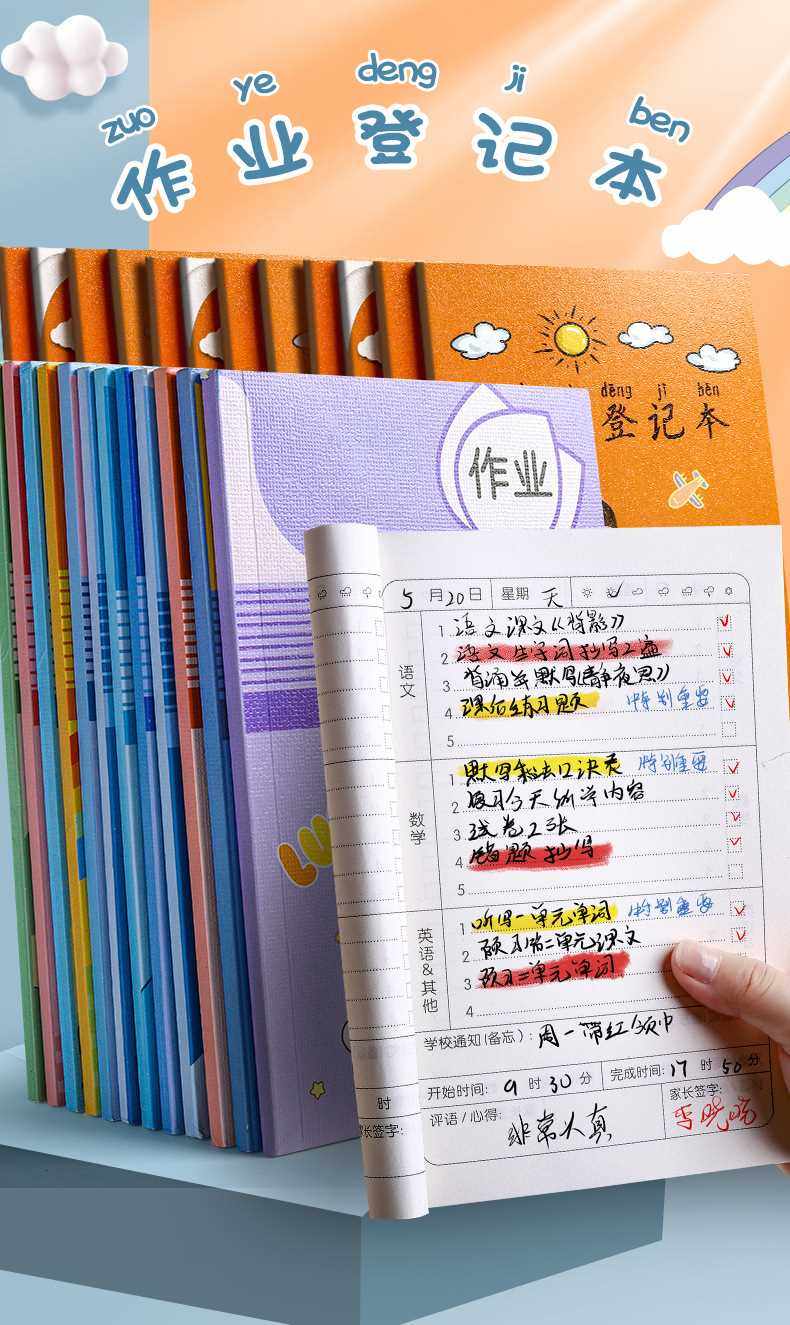 zuo ye deng ji ben
作业登记本
dēng jì běn
登记本
作业
LU
5月20日 星期 天
语文
1 语文课文《背影》
2 语文生字词抄写2遍
3 背诵并默写《静夜思》
4 课后练习题 特别重要
5
数学
1 默写乘法口决表 特别重要
2 复习今天所学内容
3 试卷2张
4 错题抄写
5
英语&其他
1 听写一单元单词 特别重要
2 预习第二单元课文
3 预习二单元单词
4
学校通知(备忘): 周一带红领巾
开始时间: 9时30分 完成时间: 17时50分
评语/心得: 非常认真
家长签字: 李晓晓
时
家长签字: